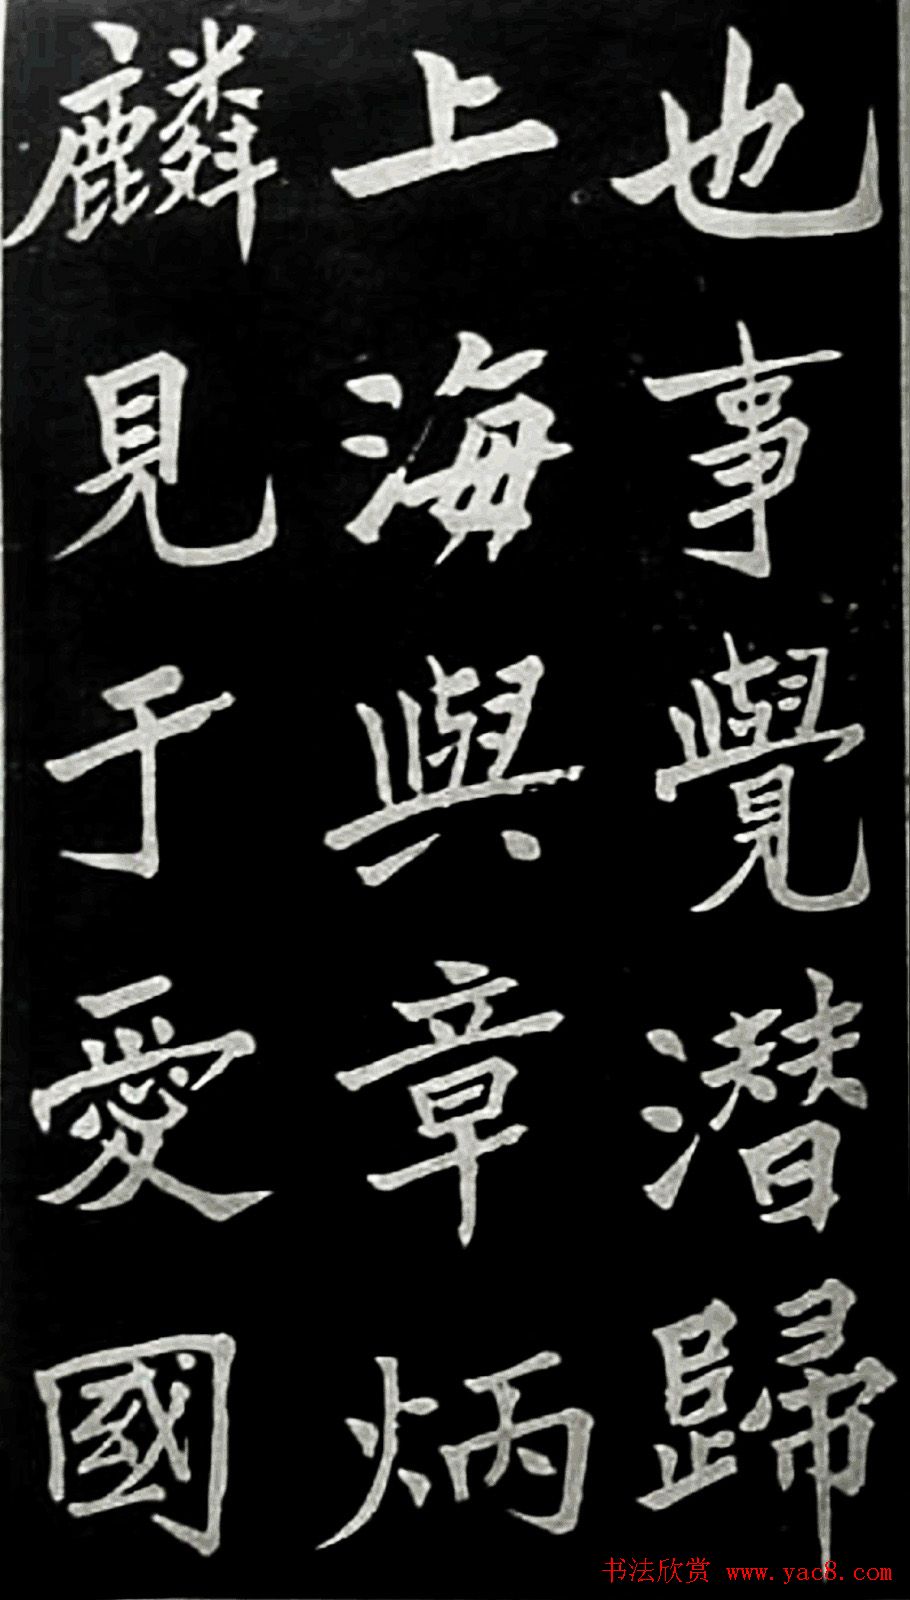 也事覺潜歸
上海與章炳
麟見于愛國
书法欣赏 www.yac8.com